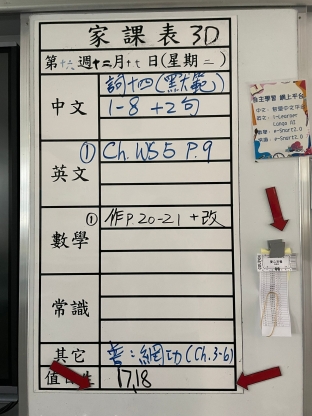 家課表 3D
第十六週十二月十七日(星期二)
中文
詞十四(默範)
1-8 +2句
英文
① Ch. WS5 P.9
數學
① 作P.20-21 +改
常識
其它
普:網功(Ch.3-6)
值日生
17,18
自主學習 網上平台